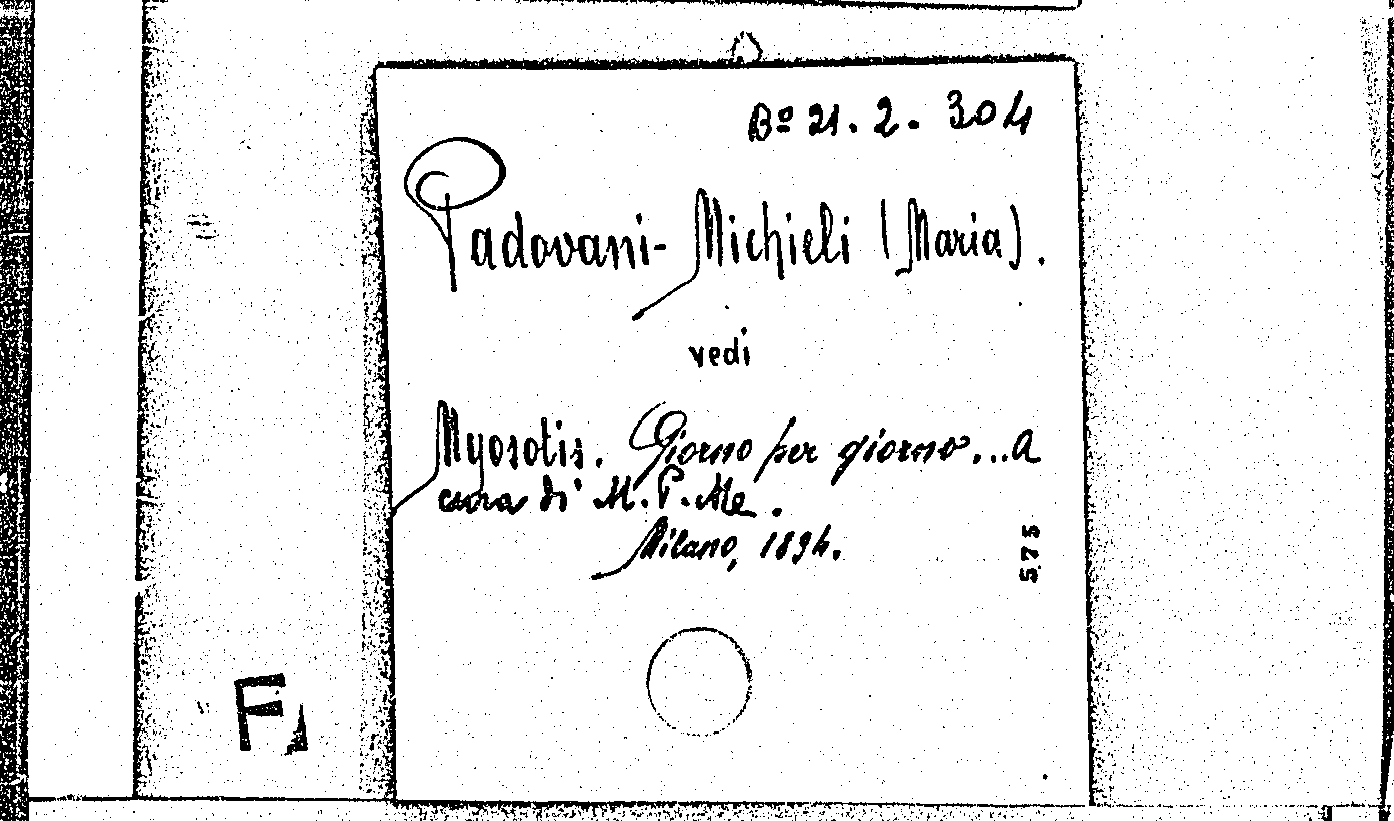 Bº 21. 2. 304
Padovani-Michieli (Maria).
vedi
Myosotis. Giorno per giorno... a
cura di M. P. Me.
Milano, 1894.
575
F